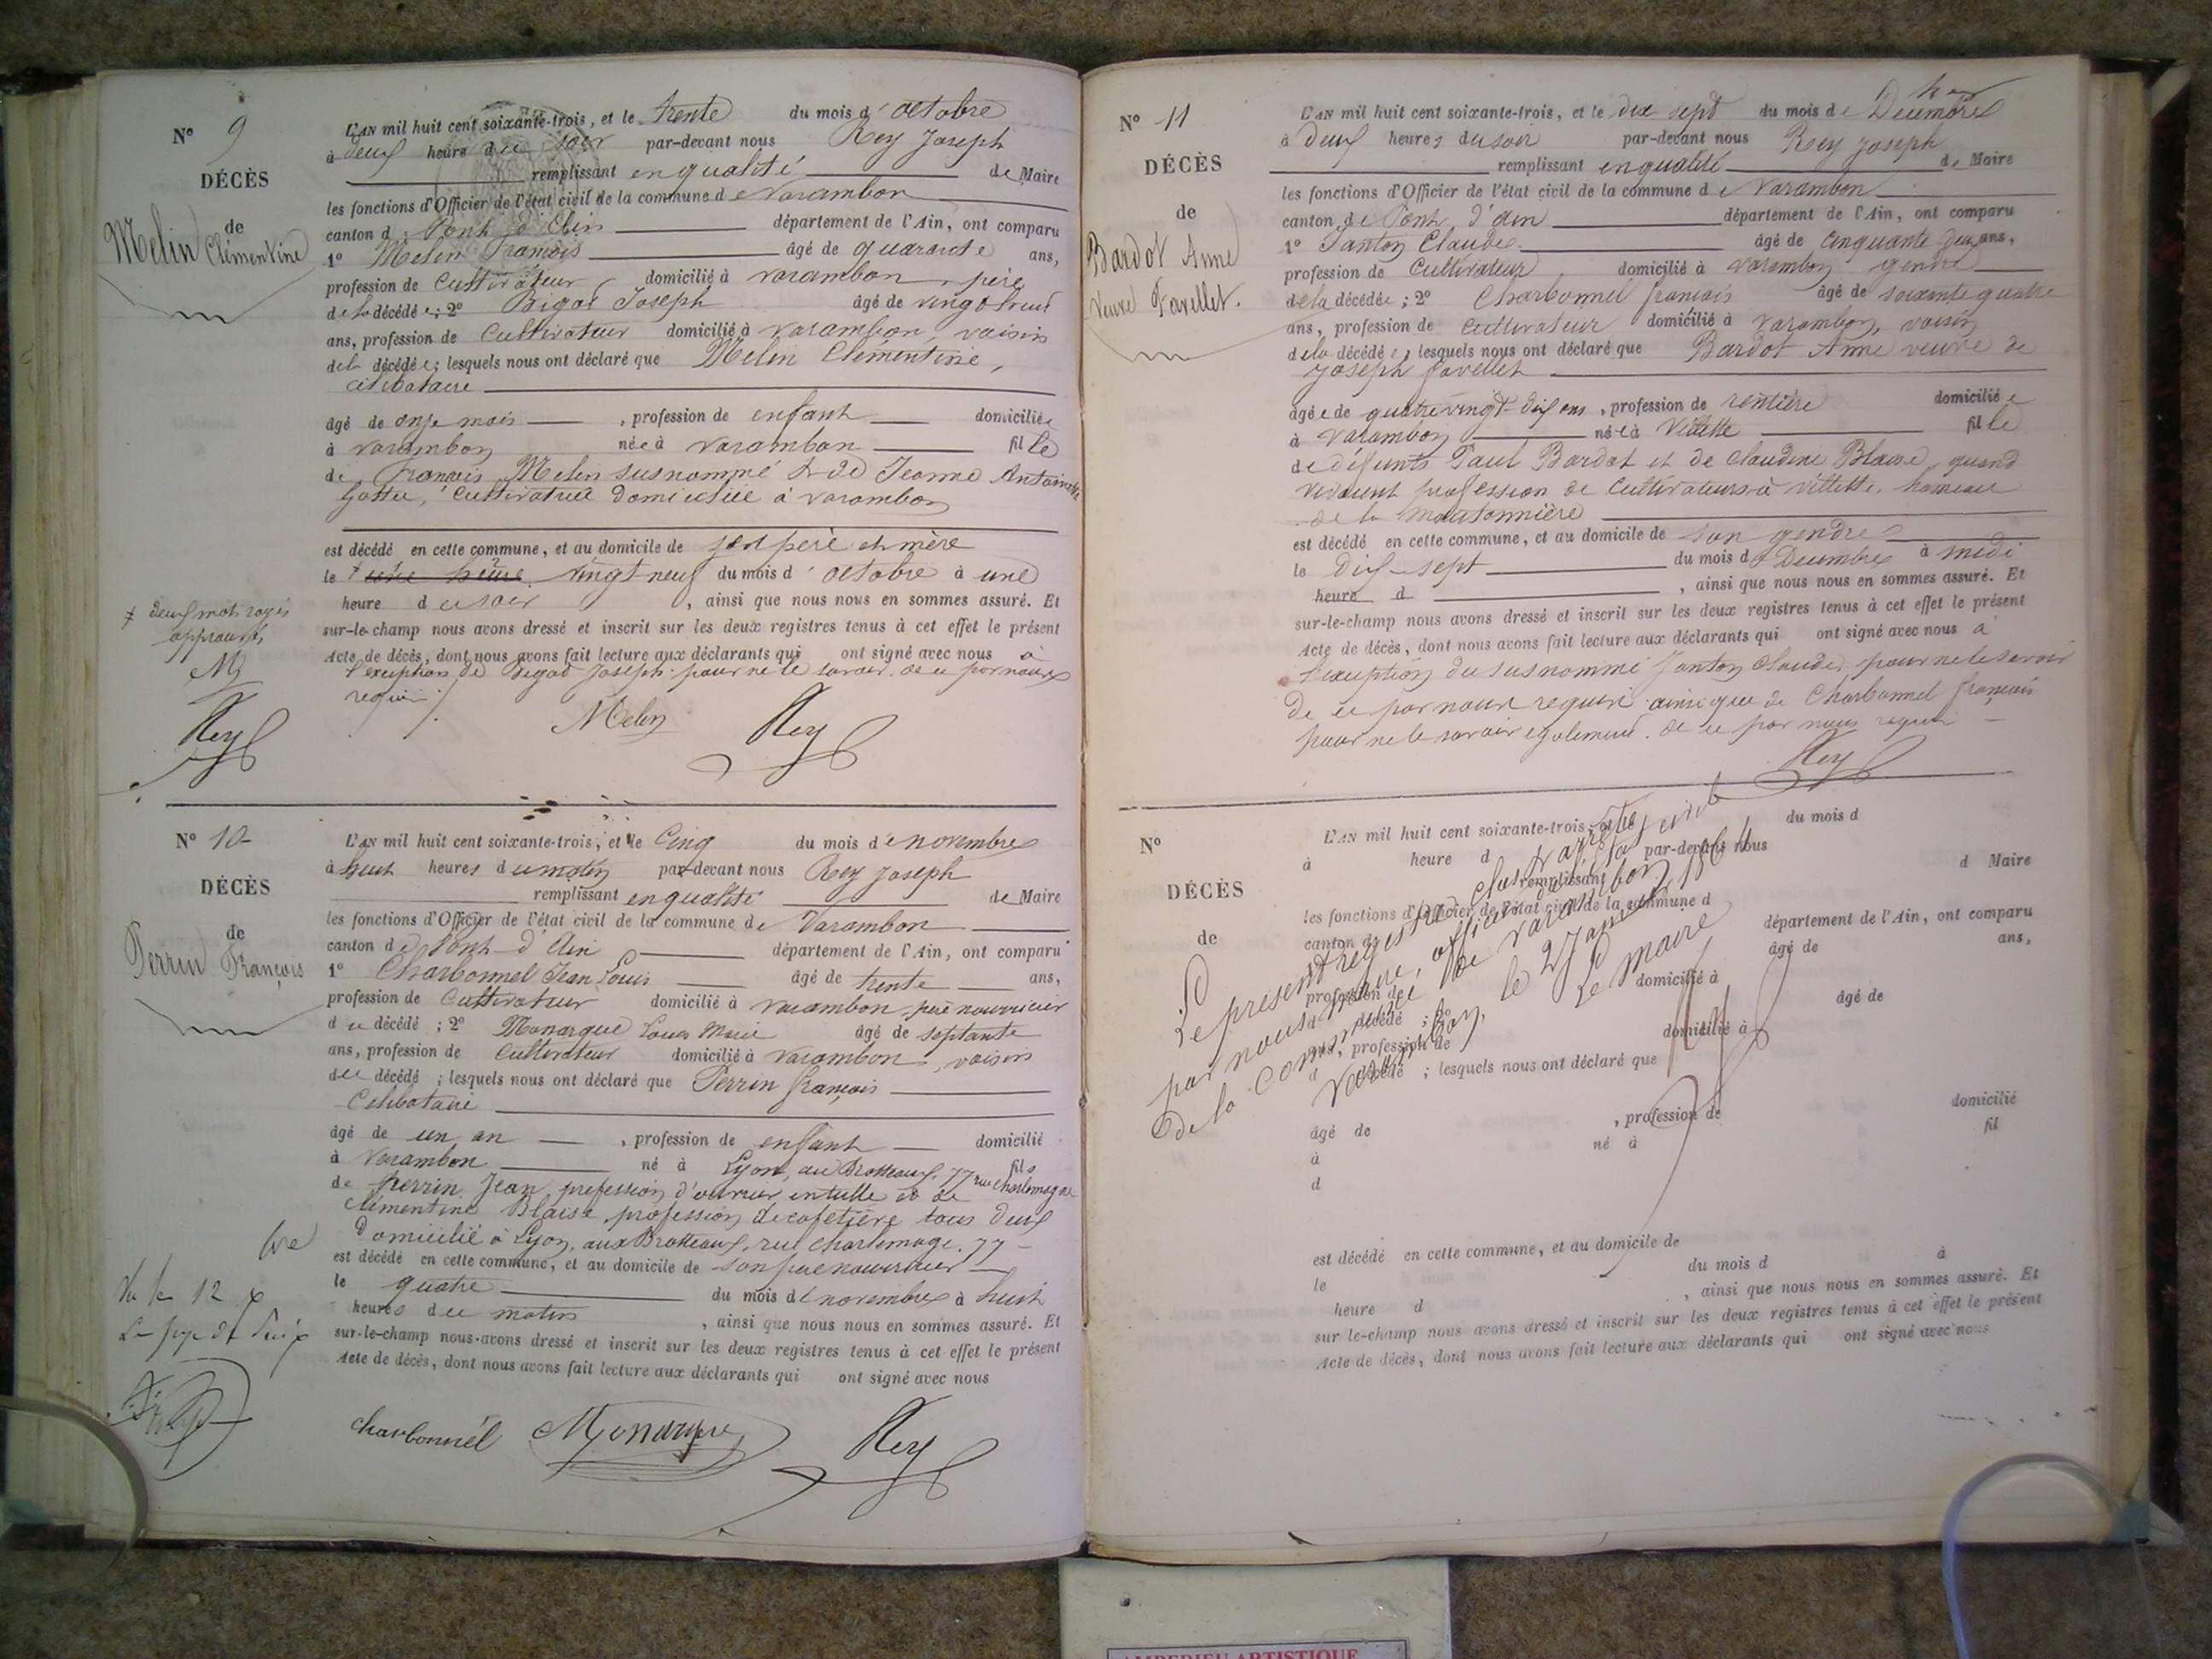 N° 9
DÉCÈS
de
Melin Clémentine
L'AN mil huit cent soixante-trois, et le trente du mois d'octobre
à deux heure du soir par-devant nous Rey Joseph
remplissant en qualité de Maire
les fonctions d'Officier de l'état civil de la commune de Varambon
canton d Pont d'Ain département de l'Ain, ont comparu
1° Melin François âgé de quarante ans,
profession de Cultivateur domicilié à varambon, père
de la décédée; 2° Bigod Joseph âgé de vingt huit
ans, profession de Cultivateur domicilié à varambon, voisin
de la décédée; lesquels nous ont déclaré que Melin Clémentine,
célibataire
âgé de onze mois, profession de enfant domiciliée
à varambon née à varambon fille
de François Melin susnommé & de Jeanne Antoinette
cultivatrice domiciliée à varambon
est décédé en cette commune, et au domicile de ses père et mère
le + une heure vingt-neuf du mois d'octobre à une
heure du soir, ainsi que nous nous en sommes assuré. Et
sur-le-champ nous avons dressé et inscrit sur les deux registres tenus à cet effet le présent
Acte de décès, dont nous avons fait lecture aux déclarants qui ont signé avec nous à
l'exception de Bigod Joseph pour ne le savoir de ce par nous
requis
+ deux mots rayés
approuvés
M
Rey
Melin Rey
N° 10
DÉCÈS
de
Perrin François
L'AN mil huit cent soixante-trois, et le Cinq du mois de novembre
à huit heures du matin par-devant nous Rey Joseph
remplissant en qualité de Maire
les fonctions d'Officier de l'état civil de la commune de Varambon
canton de Pont d'Ain département de l'Ain, ont comparu
1° Charbonnel Jean Louis âgé de trente ans,
profession de Cultivateur domicilié à varambon, père nourricier
du décédé; 2° Monarque Louis Marie âgé de septante
ans, profession de Cultivateur domicilié à varambon, voisin
du décédé; lesquels nous ont déclaré que Perrin françois
Célibataire
âgé de un an, profession de enfant domicilié
à Varambon né à Lyon, au Brotteaux, 77 rue charlemagne fils
de Perrin Jean, profession d'ouvrier en tulle et de
Clémentine Blaise, profession de cafetière tous deux
domicilié à Lyon, aux Brotteaux, rue charlemage, 77
est décédé en cette commune, et au domicile de son père nourricier
le quatre du mois de novembre à huit
heures du matin, ainsi que nous nous en sommes assuré. Et
sur-le-champ nous avons dressé et inscrit sur les deux registres tenus à cet effet le présent
Acte de décès, dont nous avons fait lecture aux déclarants qui ont signé avec nous
charbonnel Monarque Rey
N° 11
DÉCÈS
de
Bardot Anne
Veuve Favellet.
L'AN mil huit cent soixante-trois, et le dix sept du mois de Décembre
à deux heures du soir par-devant nous Rey Joseph
remplissant en qualité de Maire
les fonctions d'Officier de l'état civil de la commune de Varambon
canton de Pont d'ain département de l'Ain, ont comparu
1° Janton Claude âgé de cinquante deux ans,
profession de Cultivateur domicilié à varambon gendre
de la décédée; 2° Charbonnel françois âgé de soixante quatre
ans, profession de cultivateur domicilié à varambon, voisin
de la décédée, lesquels nous ont déclaré que Bardot Anne veuve de
Joseph favellet
âgée de quatre vingt-dix ans, profession de rentière domiciliée
à varambon née à Villette fille
de défunts Paul Bardot et de Claudine Blaise, quand
vivaient profession de cultivateurs à villette, hameau
de la
est décédé en cette commune, et au domicile de son gendre
le dix-sept du mois de Décembre à midi
heure d, ainsi que nous nous en sommes assuré. Et
sur-le-champ nous avons dressé et inscrit sur les deux registres tenus à cet effet le présent
Acte de décès, dont nous avons fait lecture aux déclarants qui ont signé avec nous à
l'exception du susnommé Janton Claude pour ne le savoir
de ce par nous requis ainsi que de Charbonnel françois
pour ne le savoir également de ce par nous requis
Rey
N°
DÉCÈS
de
L'AN mil huit cent soixante-trois, et le du mois d
à heure d par-devant nous
remplissant d Maire
les fonctions d'Officier de l'état civil de la commune d
canton d département de l'Ain, ont comparu
1° âgé de ans,
profession de domicilié à
d décédé; 2° âgé de
ans, profession de domicilié à
d décédé; lesquels nous ont déclaré que
âgé de, profession de domicilié
à né à fil
d
est décédé en cette commune, et au domicile de
le du mois d à
heure d, ainsi que nous nous en sommes assuré. Et
sur-le-champ nous avons dressé et inscrit sur les deux registres tenus à cet effet le présent
Acte de décès, dont nous avons fait lecture aux déclarants qui ont signé avec nous
Le présent registre clos & arrêté
par nous maire, officier de l'état civil
de la commune de Varambon
Varambon, le 2 Janvier 1864
Le maire
Rey
AMBERIEU ARTISTIQUE